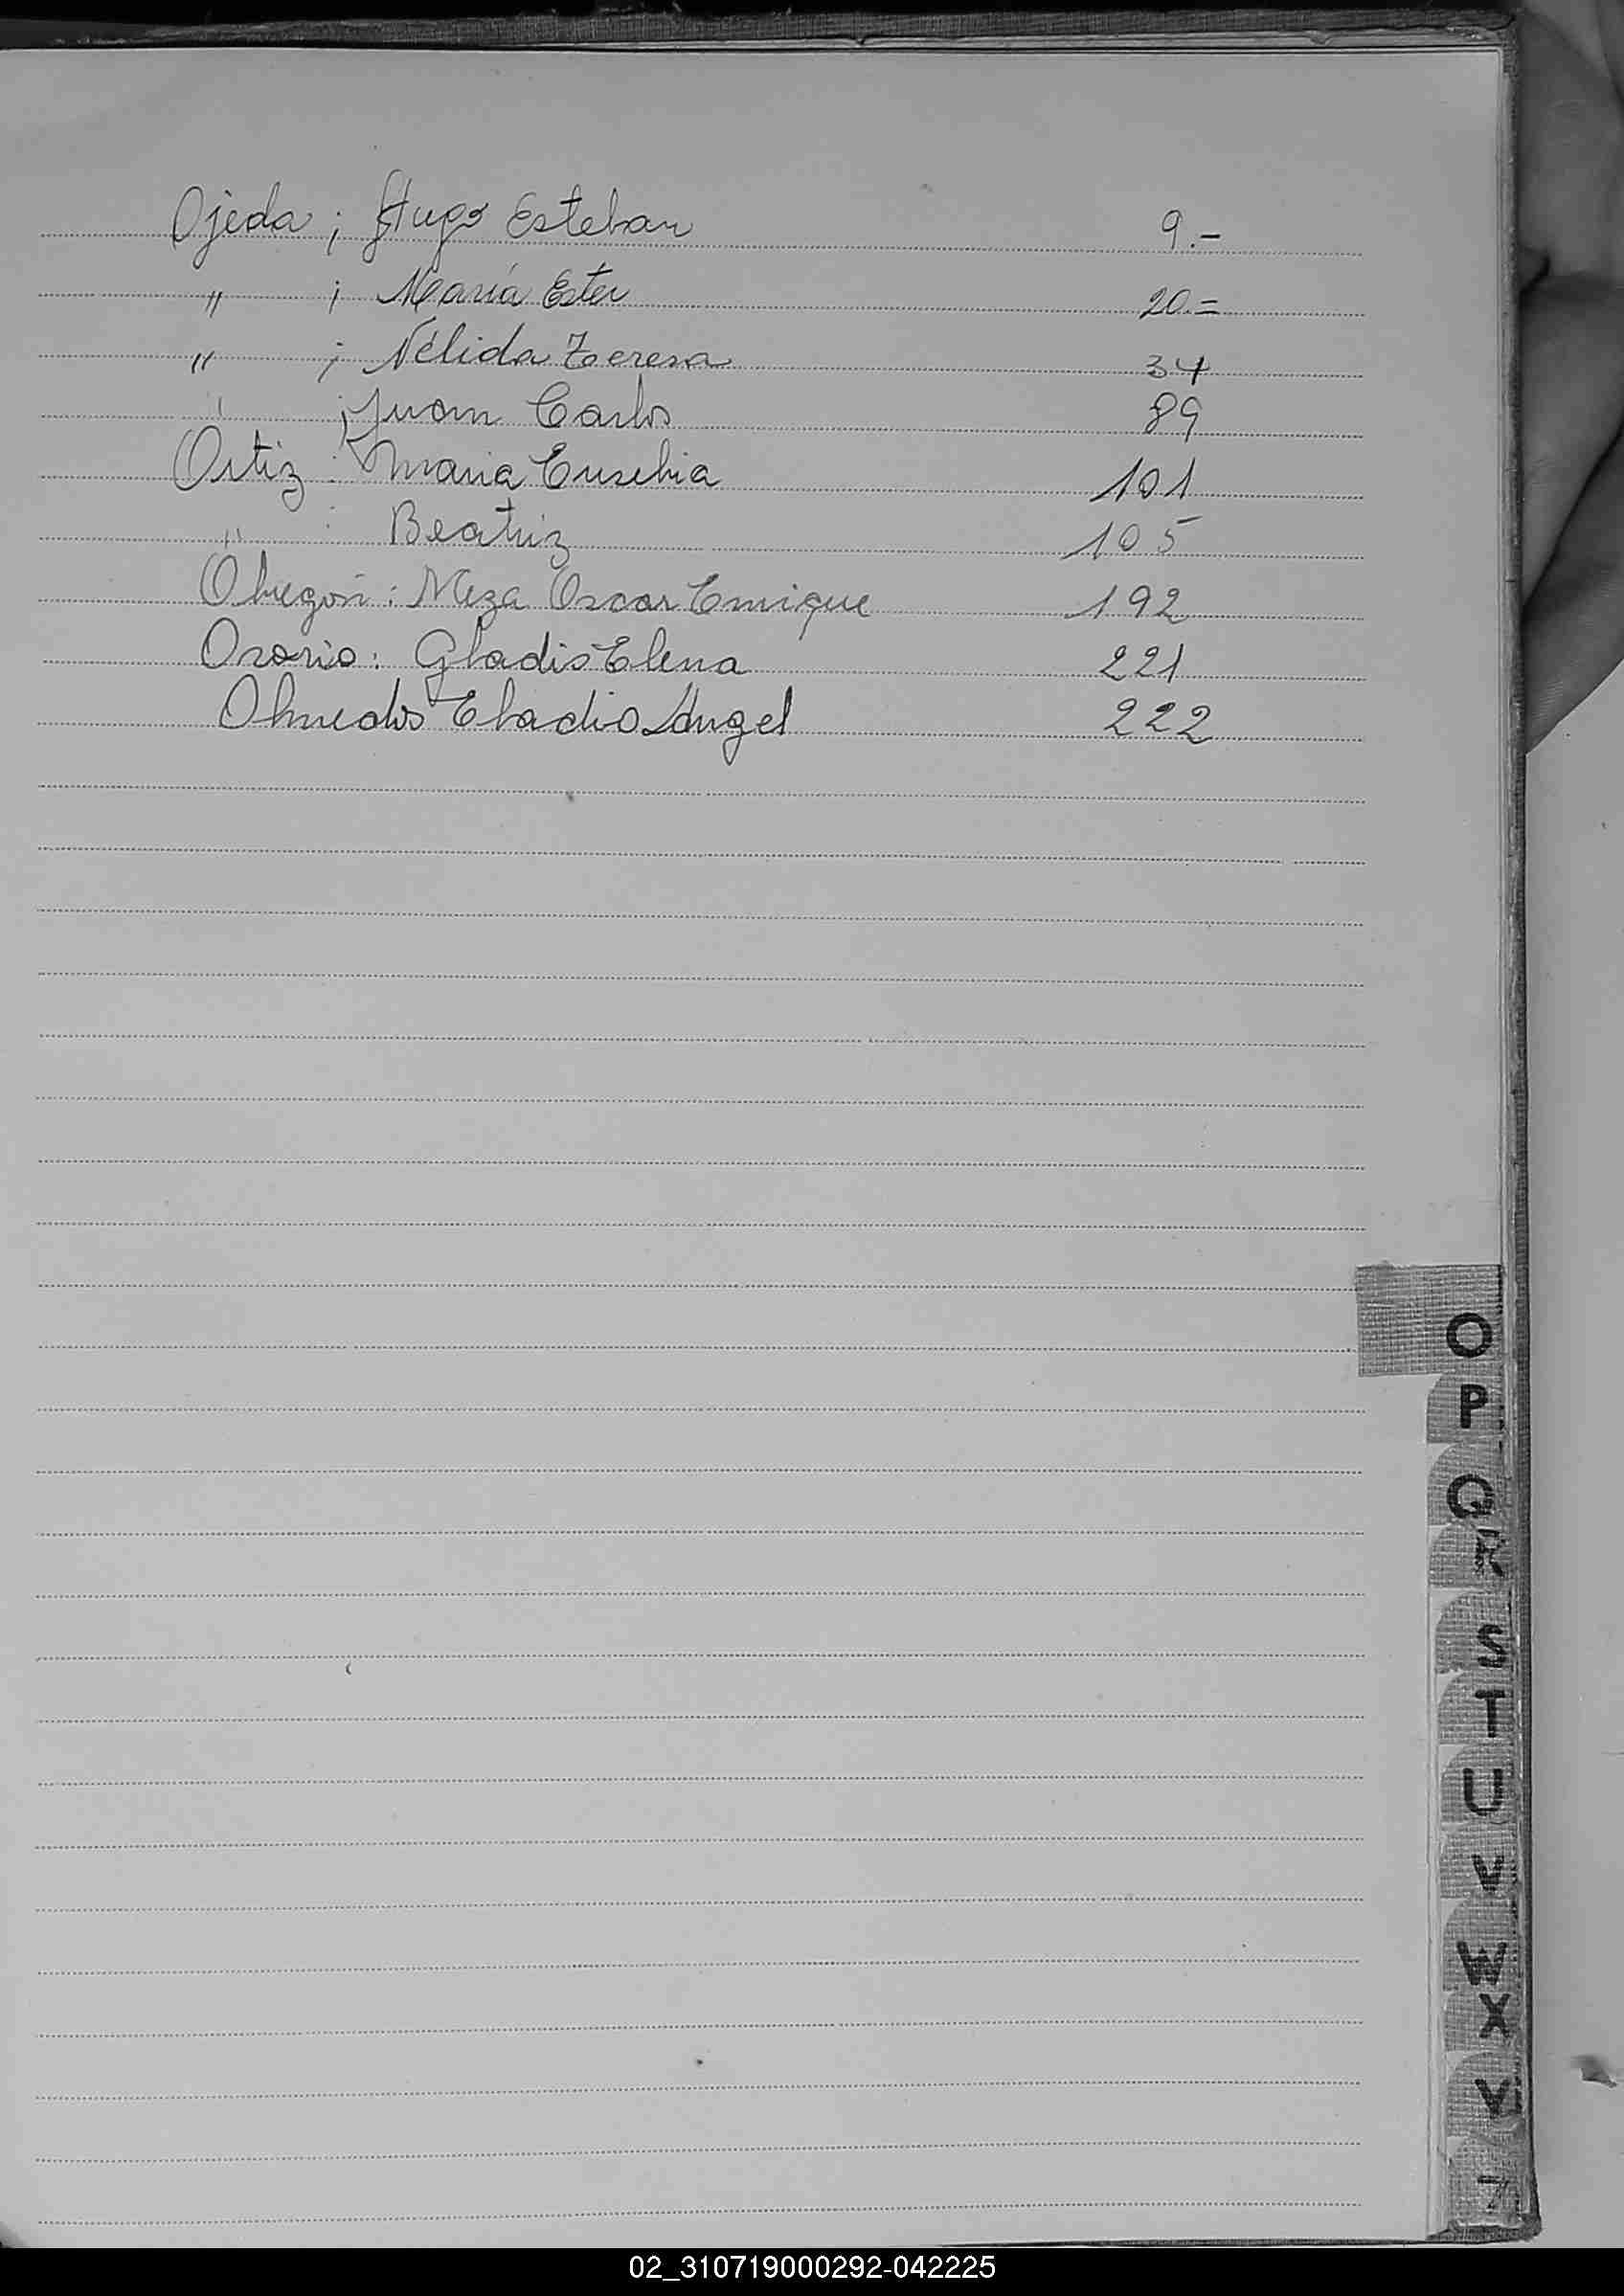 Ojeda ; Hugo Esteban 9.-
" ; María Ester 20.=
" ; Nélida Teresa 34
" ; Juan Carlos 89
Ortiz : Maria Eusebia 101
" : Beatriz 105
Obregón : Meza Oscar Enrique 192
Osorio : Gladis Elena 221
Olmedo Eladio Angel 222
O
P
Q
R
S
T
U
V
W
X
Y
Z
02_310719000292-042225